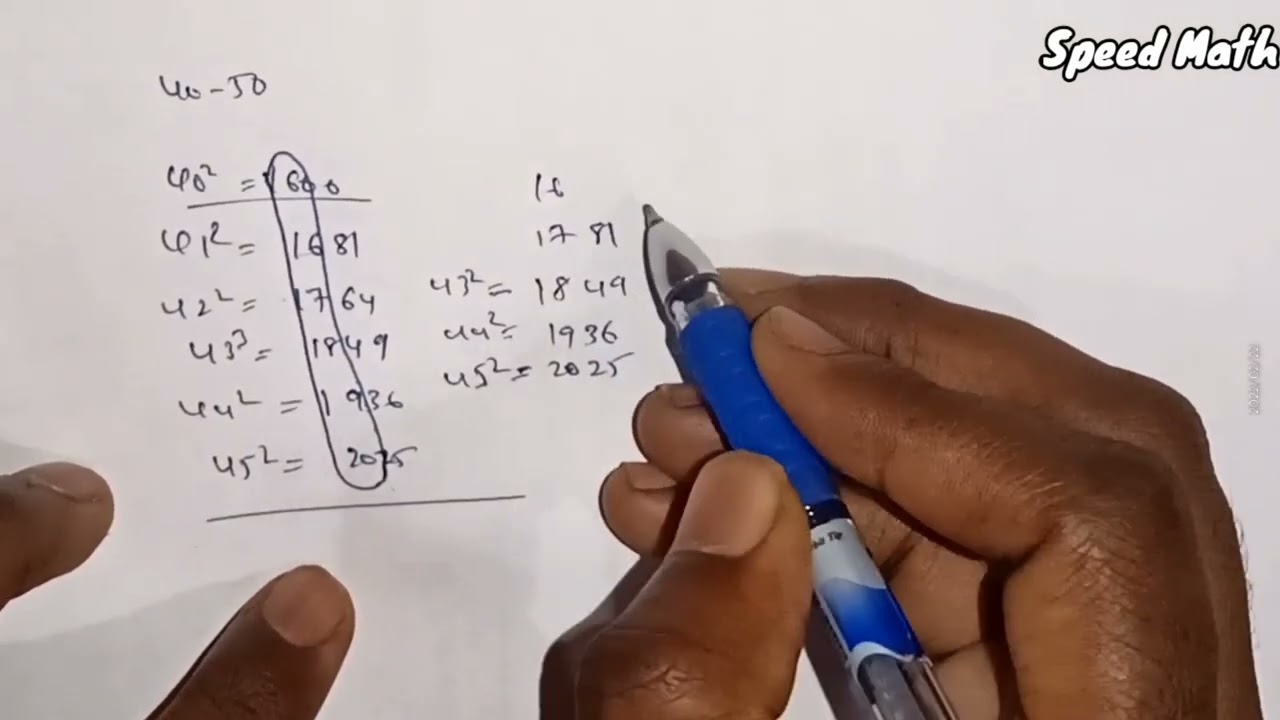 Speed Math
40-50
40² = 1600
41² = 1681
42² = 1764
43³ = 1849
44² = 1936
45² = 2025
16
17 81
43² = 18 49
44² = 1936
45² = 2025